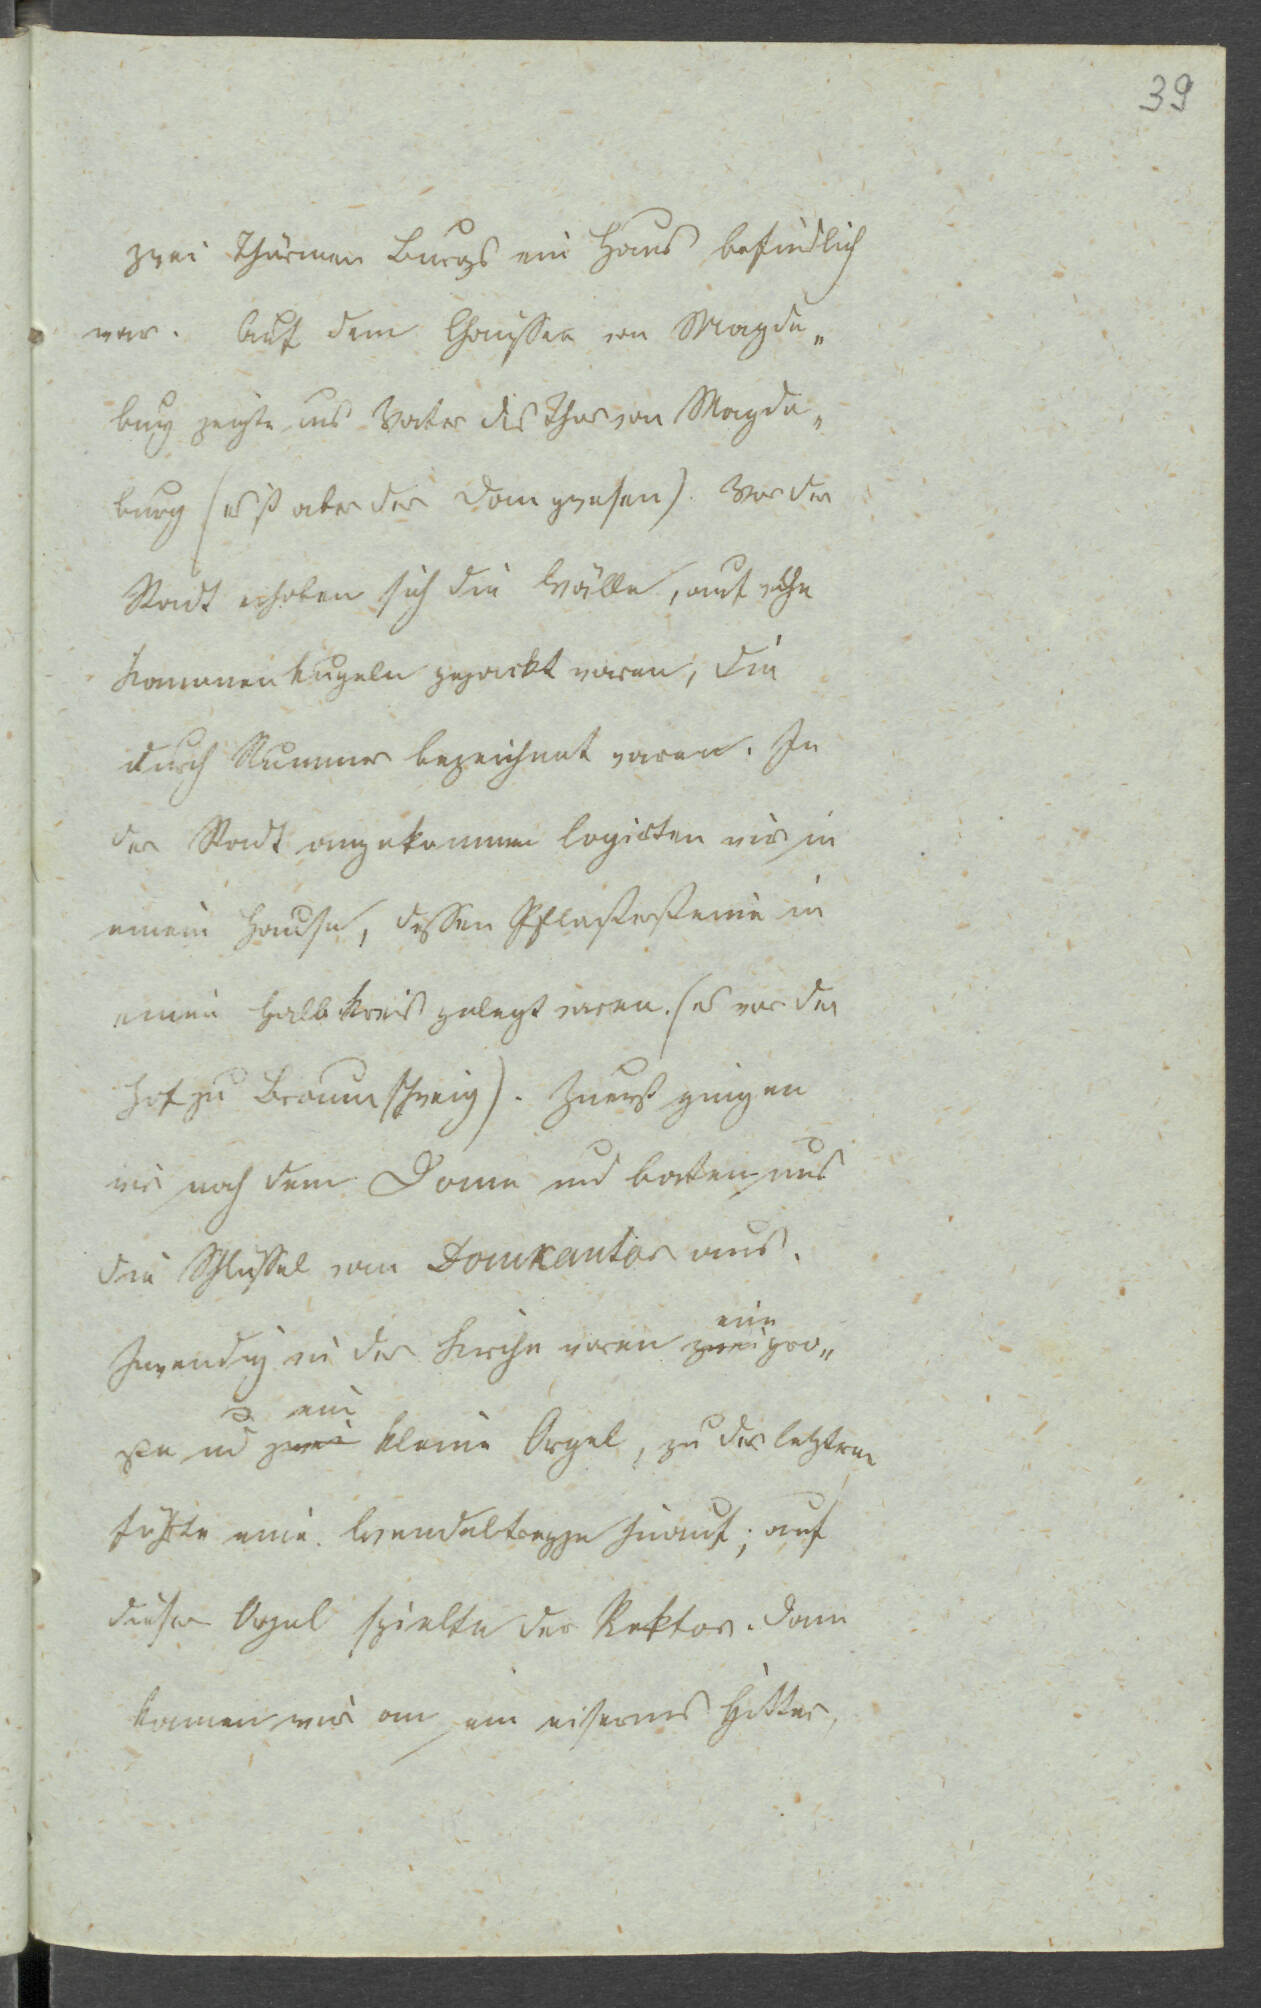 39
zwei Thürmen Burgs ein Haus befindlich
war. Auf dem Chaussee von Magde„
burg zeigte uns Vater das Thor von Magde„
burg (es ist aber der Dom gewesen). Vor der
Stadt erhoben sich die Wälle, auf
Kanonenkugeln gepackt waren, die
durch Nummer bezeichnet waren. In
der Stadt angekommen logirten wir in
einem Hause, dessen Pflastersteine in
einen Halbkreis gelegt waren. (es war der
Hof zu Braunschweig). Zuerst gingen
wir nach dem Dome und baten uns
die Schlüssel vom Domkantor aus.
Inwendig in der Kirche waren zwei eine gro„
ße und zwei eine kleine Orgel, zu der letztren
führte eine Wendeltreppe hinauf; auf
dieser Orgel spielte der Rektor. Dann
kamen wir an ein eisernes Gitter,